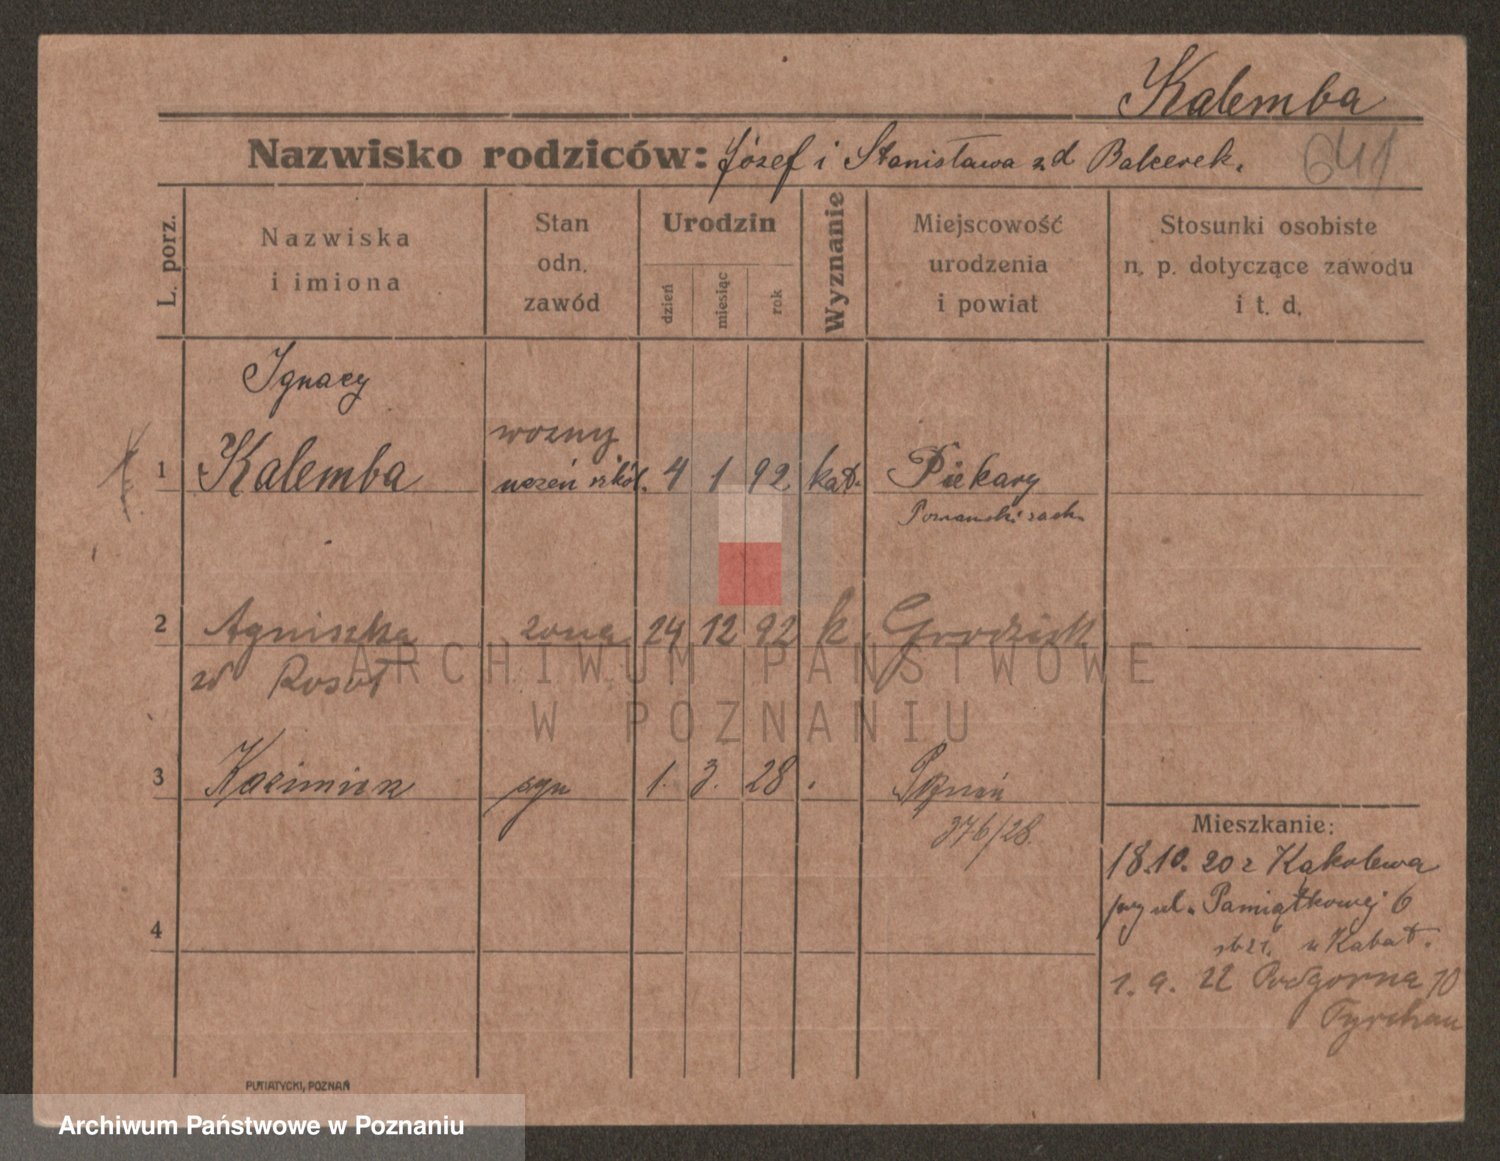 Kalemba
Nazwisko rodziców: Józef i Stanisława zd Balcerek.
641
L. porz.
Nazwiska
i imiona
Stan
odn.
zawód
Urodzin
dzień
miesiąc
rok
Wyznanie
Miejscowość
urodzenia
i powiat
Stosunki osobiste
n. p. dotyczące zawodu
i t. d.
Ignacy
1 Kalemba
woźny
uczeń szkól. 4 1 92 kat. Piekary
Poznański zach.
2 Agnieszka żona 24 12 92 k Grodzisk
zd
ARCHIWUM PAŃSTWOWE
W POZNANIU
3 Kazimierz syn 1. 3. 28 Poznań
376/28
Mieszkanie:
18.10.20 z Kąkolewa
przy ul. Pamiątkowej 6
u Kabat.
4
1. 9. 22 Podgorna 10
PUTIATYCKI, POZNAŃ
Archiwum Państwowe w Poznaniu